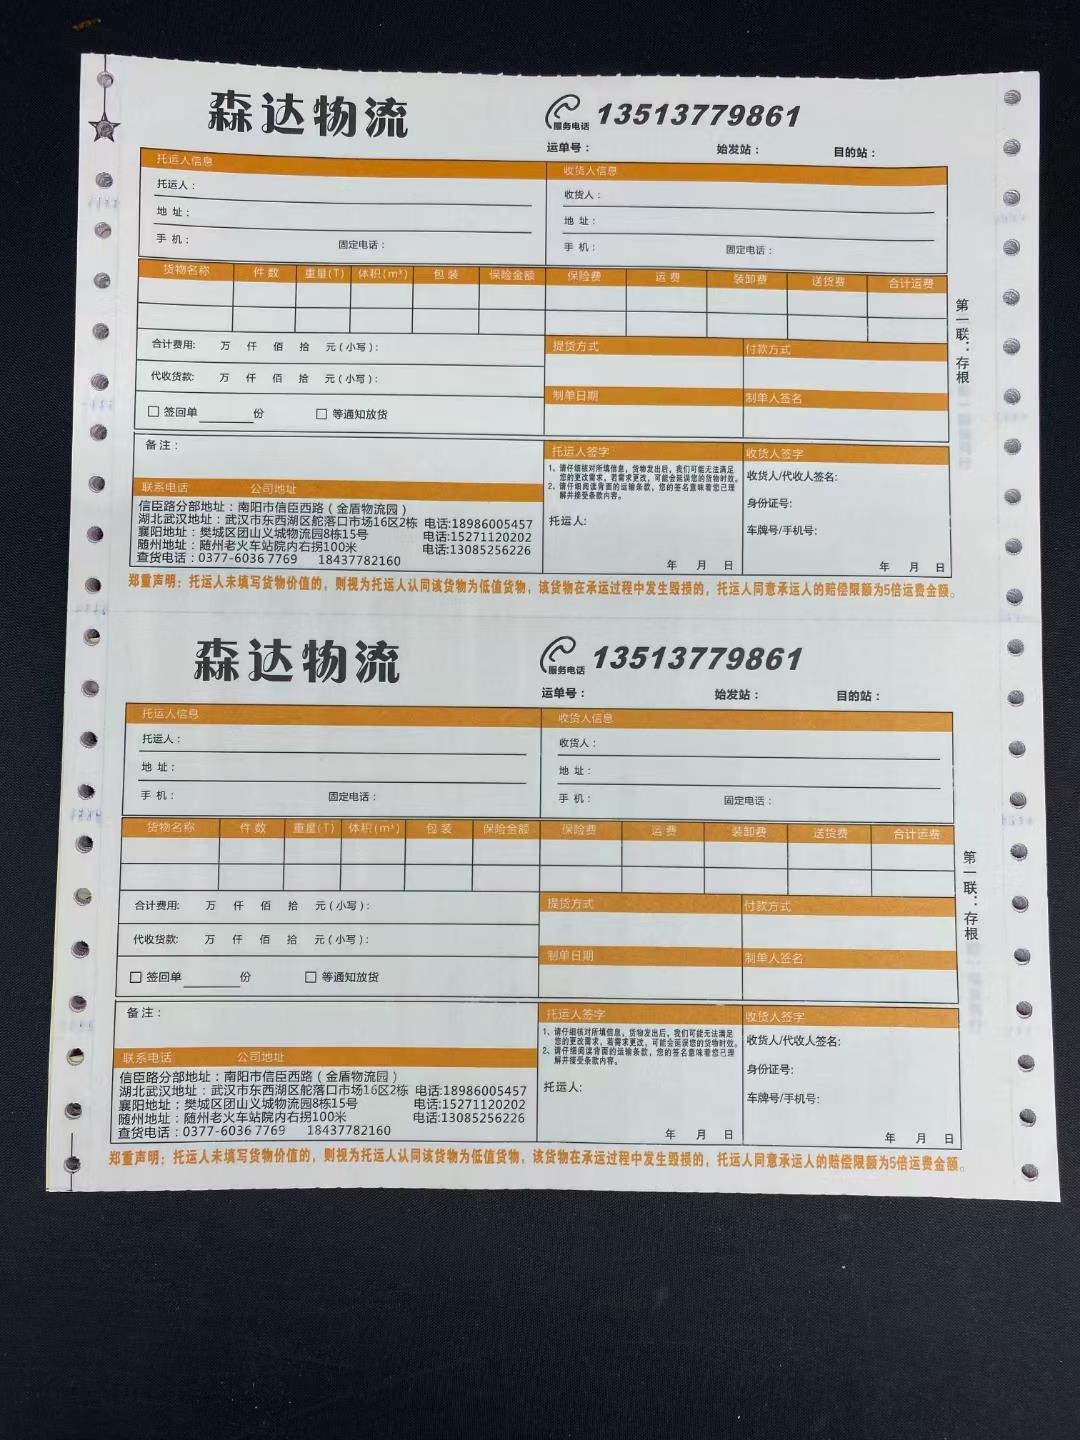 森达物流
服务电话 13513779861
运单号： 始发站： 目的站：
托运人信息 收货人信息
托运人： 收货人：
地 址： 地 址：
手 机： 固定电话： 手 机： 固定电话：
货物名称 件 数 重量(T) 体积(m³) 包 装 保险金额 保险费 运 费 装卸费 送货费 合计运费
合计费用: 万 仟 佰 拾 元(小写): 提货方式 付款方式
代收货款: 万 仟 佰 拾 元(小写): 制单日期 制单人签名
□ 签回单 份 □ 等通知放货
第一联：存根
备 注： 托运人签字 收货人签字
1、请仔细核对所填信息，货物发出后，我们可能无法满足
您的更改需求，若需求更改，可能会延误您的货物时效。
2、请仔细阅读背面的运输条款，您的签名意味着您已理
解并接受条款内容。
托运人:
年 月 日
收货人/代收人签名:
身份证号:
车牌号/手机号:
年 月 日
联系电话 公司地址
信臣路分部地址：南阳市信臣西路（金盾物流园）
湖北武汉地址：武汉市东西湖区舵落口市场16区2栋 电话:18986005457
襄阳地址：樊城区团山义城物流园8栋15号 电话:15271120202
随州地址：随州老火车站院内右拐100米 电话:13085256226
查货电话：0377-6036 7769 18437782160
郑重声明：托运人未填写货物价值的，则视为托运人认同该货物为低值货物，该货物在承运过程中发生毁损的，托运人同意承运人的赔偿限额为5倍运费金额。
森达物流
服务电话 13513779861
运单号： 始发站： 目的站：
托运人信息 收货人信息
托运人： 收货人：
地 址： 地 址：
手 机： 固定电话： 手 机： 固定电话：
货物名称 件 数 重量(T) 体积(m³) 包 装 保险金额 保险费 运 费 装卸费 送货费 合计运费
合计费用: 万 仟 佰 拾 元(小写): 提货方式 付款方式
代收货款: 万 仟 佰 拾 元(小写): 制单日期 制单人签名
□ 签回单 份 □ 等通知放货
第一联：存根
备 注： 托运人签字 收货人签字
1、请仔细核对所填信息，货物发出后，我们可能无法满足
您的更改需求，若需求更改，可能会延误您的货物时效。
2、请仔细阅读背面的运输条款，您的签名意味着您已理
解并接受条款内容。
托运人:
年 月 日
收货人/代收人签名:
身份证号:
车牌号/手机号:
年 月 日
联系电话 公司地址
信臣路分部地址：南阳市信臣西路（金盾物流园）
湖北武汉地址：武汉市东西湖区舵落口市场16区2栋 电话:18986005457
襄阳地址：樊城区团山义城物流园8栋15号 电话:15271120202
随州地址：随州老火车站院内右拐100米 电话:13085256226
查货电话：0377-6036 7769 18437782160
郑重声明：托运人未填写货物价值的，则视为托运人认同该货物为低值货物，该货物在承运过程中发生毁损的，托运人同意承运人的赔偿限额为5倍运费金额。